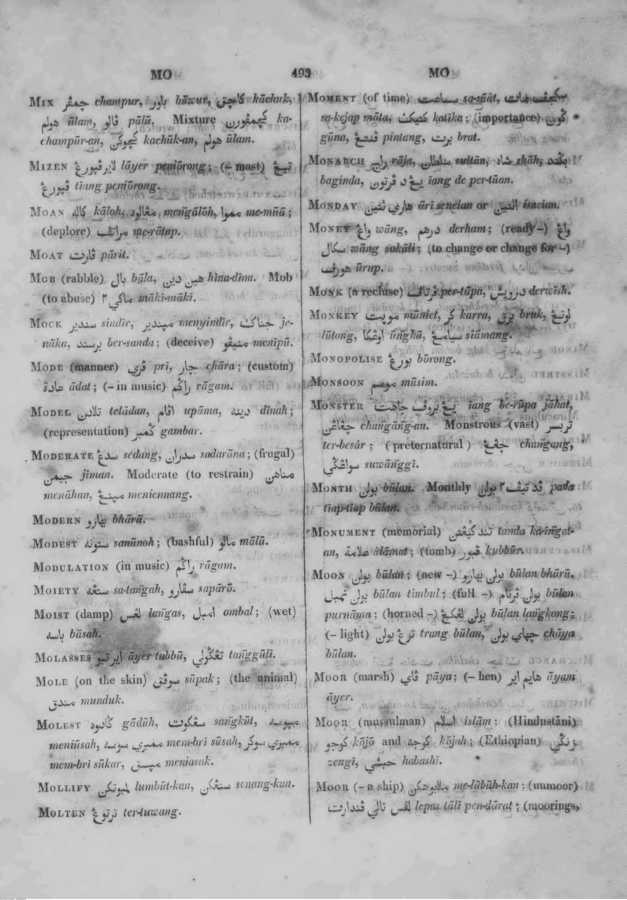 MO 493 MO
MIX چمفر champur, باور bāwur, کاچق kāchok,
هولم ūlam, فالو pālū. Mixture کچمفورن ka-
champūr-an, کچوکن kachūk-an, هولم ūlam.
MIZEN لاير فپورڠ lāyer peniōrong; (– mast) تيڠ
فپورڠ tiang peniōrong.
MOAN کاله kāloh, مڠالوه, mengālōh, me-mūū;
(deplore) مراتف me-rātap.
MOAT فارت pārit.
MOB (rabble) بال bāla, هين دين hīna-dīna. Mob
(to abuse) ماکي ٢ māki-māki.
MOCK سندير sindir, مپندير menyindir, جناک je-
nāka, برسند ber-sanda; (deceive) منيفو menīpū.
MODE (manner) فري pri, چار chāra; (custom)
عادة ādat; (– in music) راگم rāgam.
MODEL تلادن telādan, اقام upāma, دينه dinah;
(representation) گمبر gambar.
MODERATE سدڠ sedang, سدران sadarāna; (frugal)
جيمن jiman. Moderate (to restrain) مناهن
menāhan, meniennang.
MODERN بهارو bhārū.
MODEST سنونه sanūnoh; (bashful) مالو mālū.
MODULATION (in music) راگم rāgam.
MOIETY ستڠه sa-tangah, سفارو sapārū.
MOIST (damp) لڠس langas, امبل ombal; (wet)
باسه bāsah.
MOLASSES اير تبو āyer tubbū, تڠگولي tanggūli.
MOLE (on the skin) سوفق sūpak; (the animal)
مندق munduk.
MOLEST گادوه gādūh, سڠکوت sangkūt,
meniūsah, ممبري سوسه mem-bri sūsah, ممبري سوکر
mem-bri sūkar, meniasak.
MOLLIFY لمبوتکن lumbūt-kan, سنڠکن senang-kan.
MOLTEN ترتوڠ ter-tuwang.
MOMENT (of time) ساعت sa-sāāt,
sa-kejap māta, کتيک katika; (importance) گون
gūna, فنتڠ pintang, برت brat.
MONARCH راج rāja, سلطان sultān, شاه shāh,
baginda, يڠ د فرتون iang de per-tūan.
MONDAY هاري اثنين āri senelan or الاثنين isneian.
MONEY واڠ wāng, درهم derham; (ready –) واڠ
سکال wāng sakāli; (to change or change for –)
هورف ūrup.
MONK (a recluse) فرتاف per-tāpa, درويش derwish.
MONKEY مونيت mūniet, کر karra, برق bruk, لوتڠ
lūtong, اوڠکا ūngkā, سيامڠ siāmang.
MONOPOLISE بورڠ bōrong.
MONSOON موسم mūsim.
MONSTER يڠ بروف جاهت iang be-rūpa jāhat,
چڠاڠن changāng-an. Monstrous (vast) تربسر
ter-besār; (preternatural) چڠڠ changang,
سواڠگي suwānggi.
MONTH بولن būlan. Monthly pada
tiap-tiap būlan.
MONUMENT (memorial) تند کايڠتن tanda ka-ingat-
an, علامة ālāmat; (tomb) قبور kubbūr.
MOON بولن būlan; (new –) بولن بهارو būlan bhārū,
بولن تمبل būlan timbul; (full –) بولن فرنام būlan
purnāma; (horned –) بولن لڠکڠ būlan langkong;
(– light) ترڠ بولن trang būlan, چهاي بولن chāya
būlan.
MOOR (marsh) فاي pāya; (– hen) هايم اير āyam
āyer.
MOOR (musulman) اسلام islām; (Hindustāni)
کوجو kōjō and کوجه kōjah; (Ethiopian) زنگي
zengi, حبشي habashi.
MOOR (– a ship) ملابوهکن me-lābūh-kan; (unmoor)
لفس تالي فندارت lepas tāli pen-dārat; (moorings,